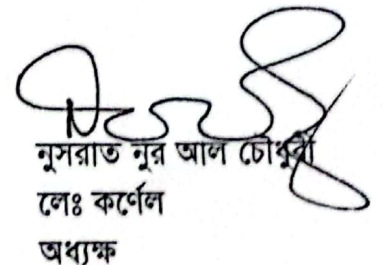 নুসরাত নুর আল চৌধুরী
লেঃ কর্ণেল
অধ্যক্ষ